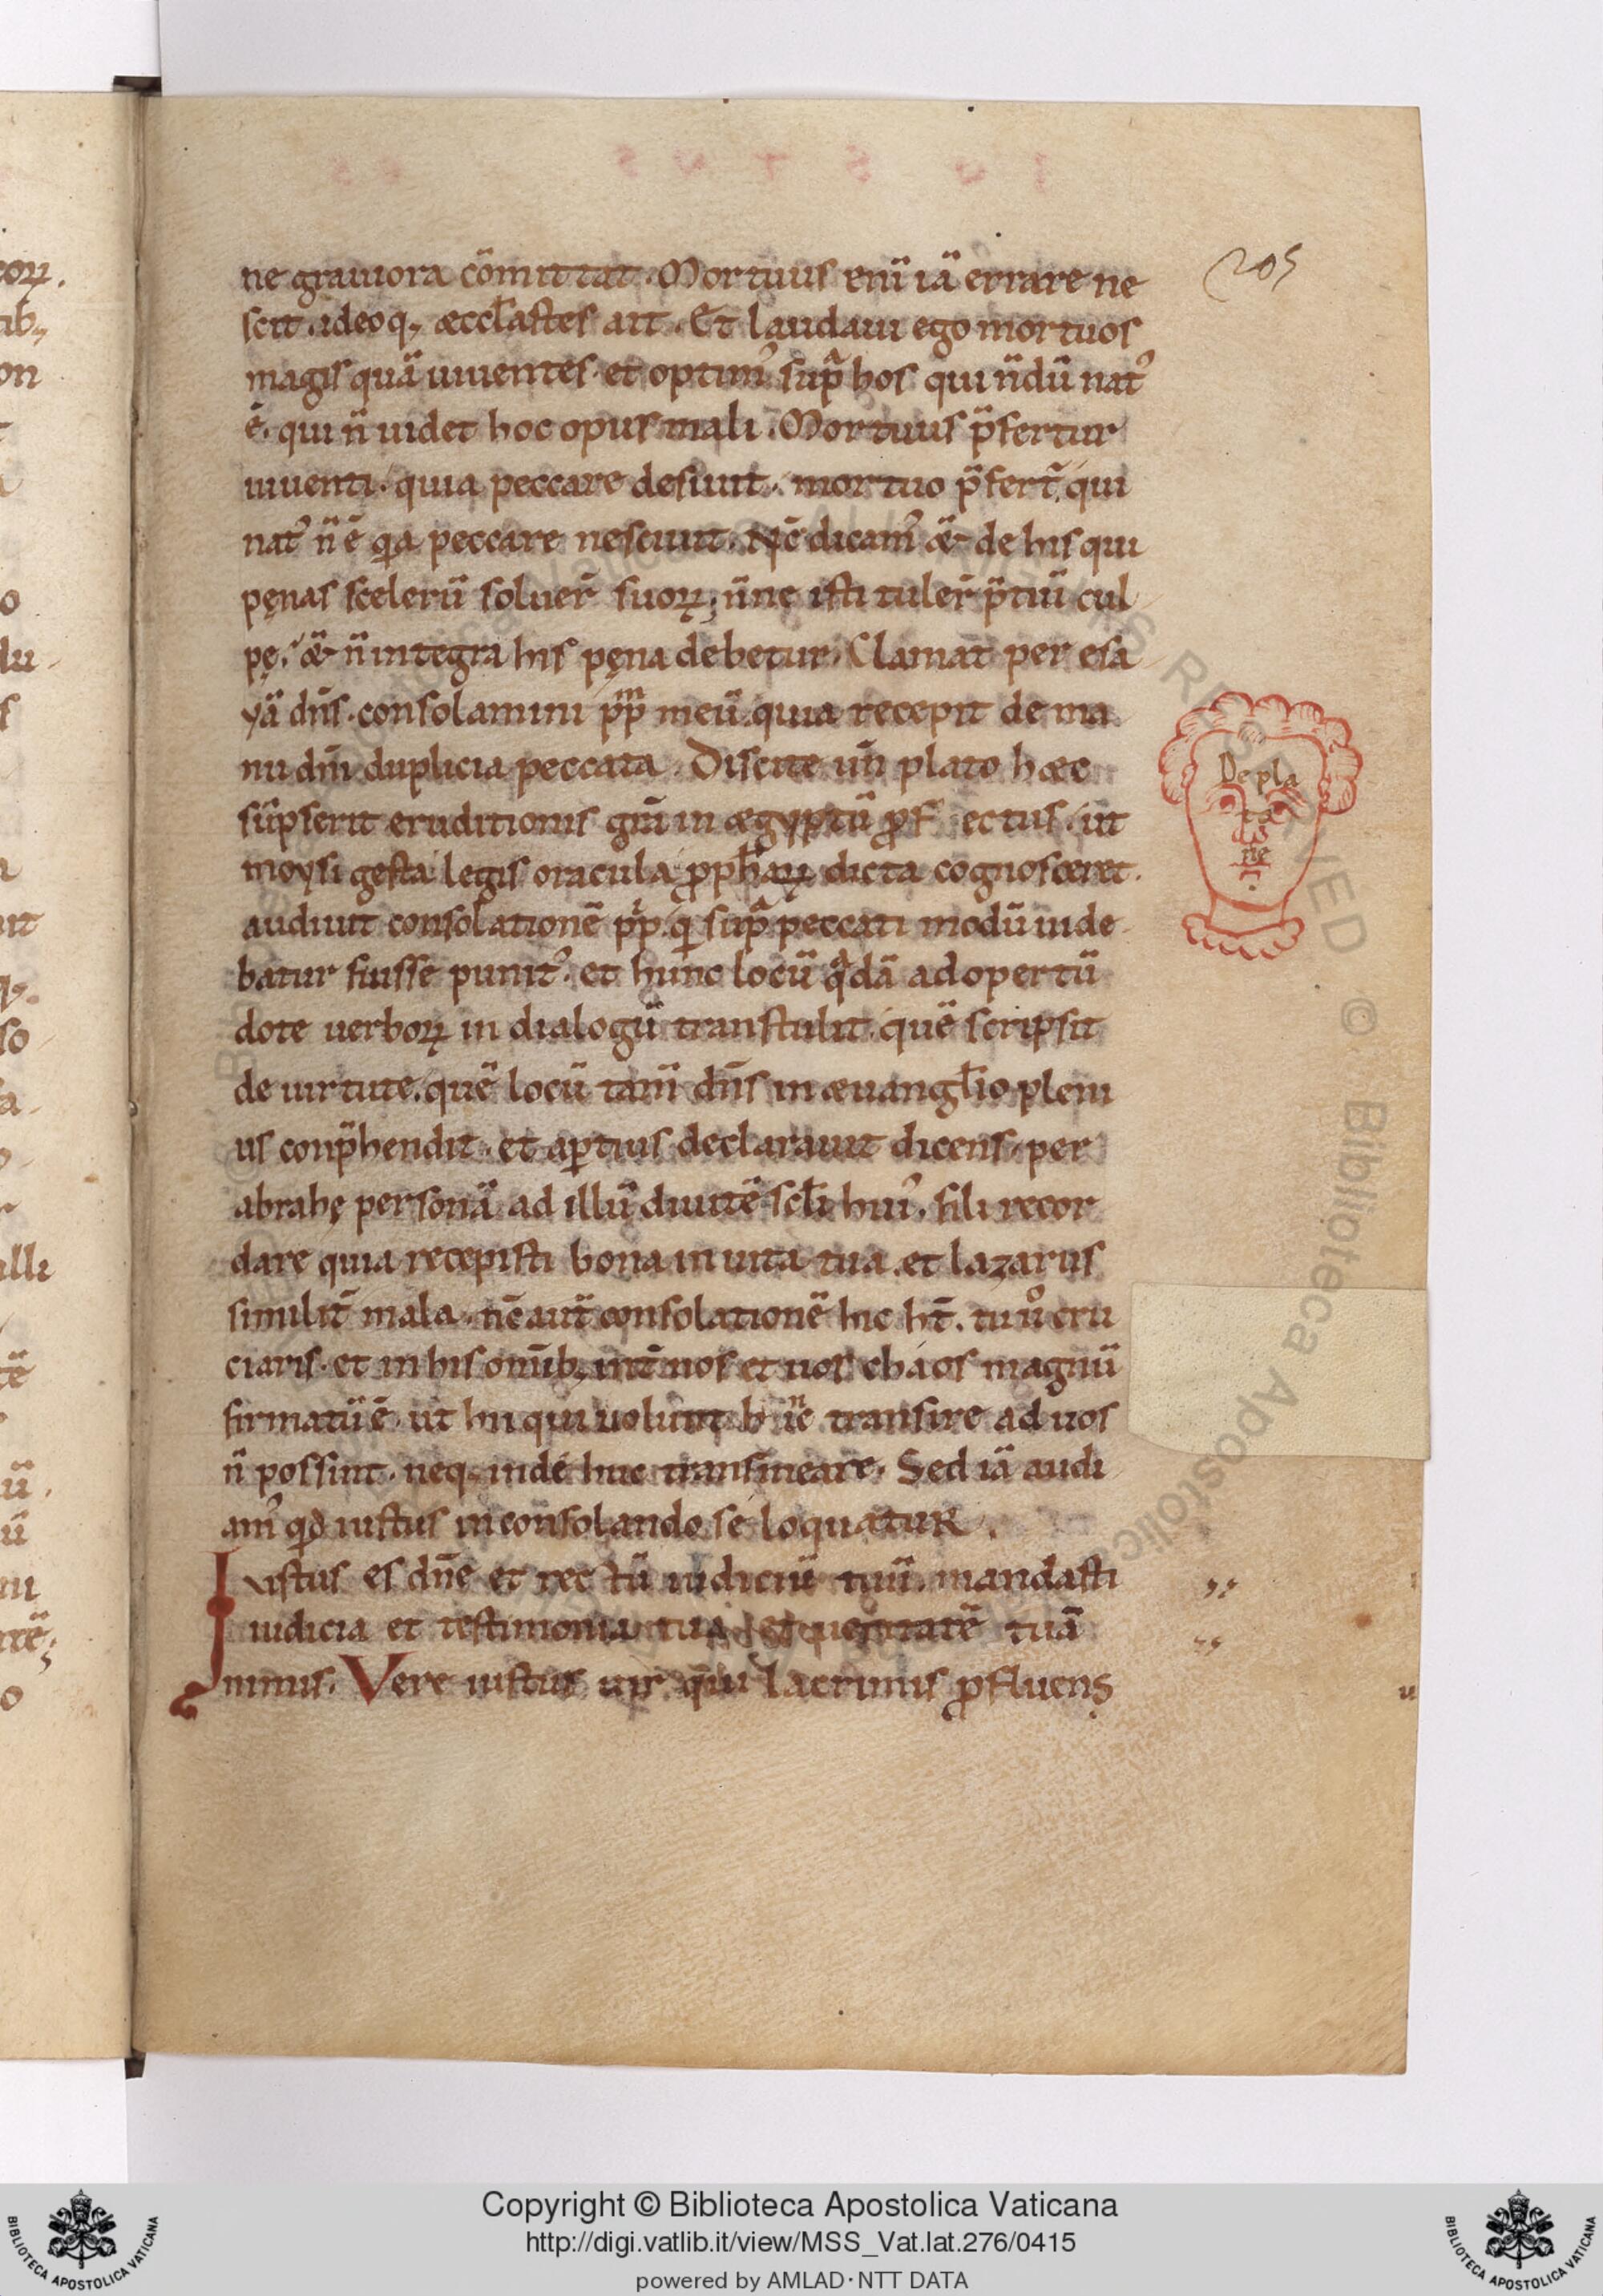 205
ne grauiora cōmittat. Mortuus eni᷃ iā errare ne
scit. ideoq; æccl̄astes ait. Et laudaui ego mortuos
magis quā uiuentes. et optim᾿ supᵃ hos qui n̄dū nat᾿
ē. qui n̄ uidet hoc opus mali. Mortuus p̄fertur
uiuenti. quia peccare desiuit. mortuo p̄fert̄ qui
nat᾿ n̄ ē qa peccare nesciuit. Nc̄ dicam᾿ & de his qui
pęnas scelerū soluer̄ suoꝝ; n̄ne isti tuler̄ p̄tiū cul
pę. & n̄ integra his pęna debetur. Clamat per esa
yā dn̄s. consolamini pp̄m meū. quia recepit de ma
nu dn̄i duplicia peccata. Discite un̄ plato hæc
sūpserit eruditionis grā in ægyptū ꝓfectus. ut
moysi gesta legis oracula ꝓpħaꝝ dicta cognosceret.
audiuit consolationē pp̄i. q̇ supᵃ peccati modū uide
batur fuisse punit᾿. et hunc locū qᵃdā adopertū
dote uerboꝝ in dialogū transtulit. quē scripsit
de uirtute. quē locū tam̄ dn̄s in æuangl̄io pleni
us conp̄hendit. et aꝑtius declarauit dicens. per
abrahę personā ad illū diuitē scl̄i hui᾿. fili recor
dare quia recepisti bona in uita tua. et lazarus
similit̄ mala. nc̄ aut̄ consolationē hic ht̄. tu ů cru
ciaris. et in his om̄ib; int̄ nos et uos chaos magnū
firmatū ē. ut hii qui uolunt hīc transire ad uos
n̄ possint. neq; inde huc transmeare. Sed iā audi
am᾿ qđ iustus in consolando se loquatuR.
Iustus es dn̄e et rectū iudiciū tuū. mandasti
iudicia et testimonia tua. et ueritatē tuā
nimis. Vere iustus uir. qui lacrimis ꝓfluens
De pla
to
ne
Copyright © Biblioteca Apostolica Vaticana
http://digi.vatlib.it/view/MSS_Vat.lat.276/0415
powered by AMLAD·NTT DATA
BIBLIOTECA APOSTOLICA VATICANA
BIBLIOTECA APOSTOLICA VATICANA